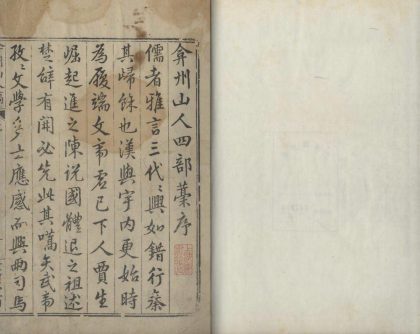 弇州山人四部藁序
儒者雅言三代〻興如錯行秦
其歸餘也漢興宇内更始時
為履端文帝君已下人賈生
崛起進之陳說國體退之祖述
楚辭有開必先此其嚆矢武帝
孜〻文學多士應感而興兩司馬